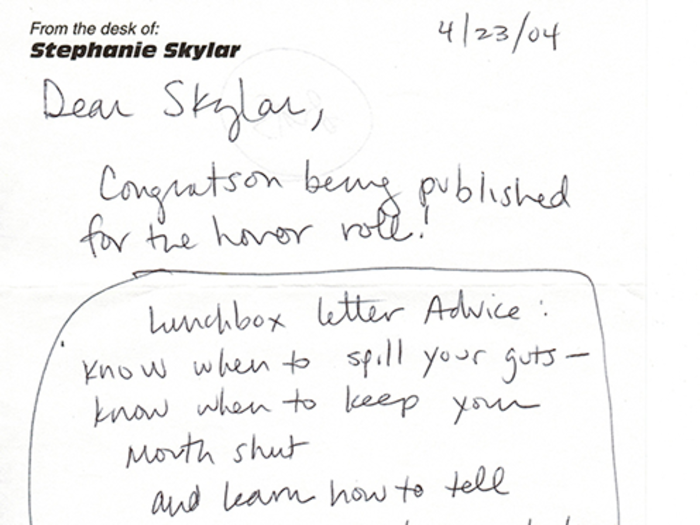 From the desk of:
Stephanie Skylar
4/23/04
Dear Skylar,
Congrats on being published
for the honor roll!
Lunchbox letter Advice:
Know when to spill your guts—
know when to keep your
mouth shut
and learn how to tell